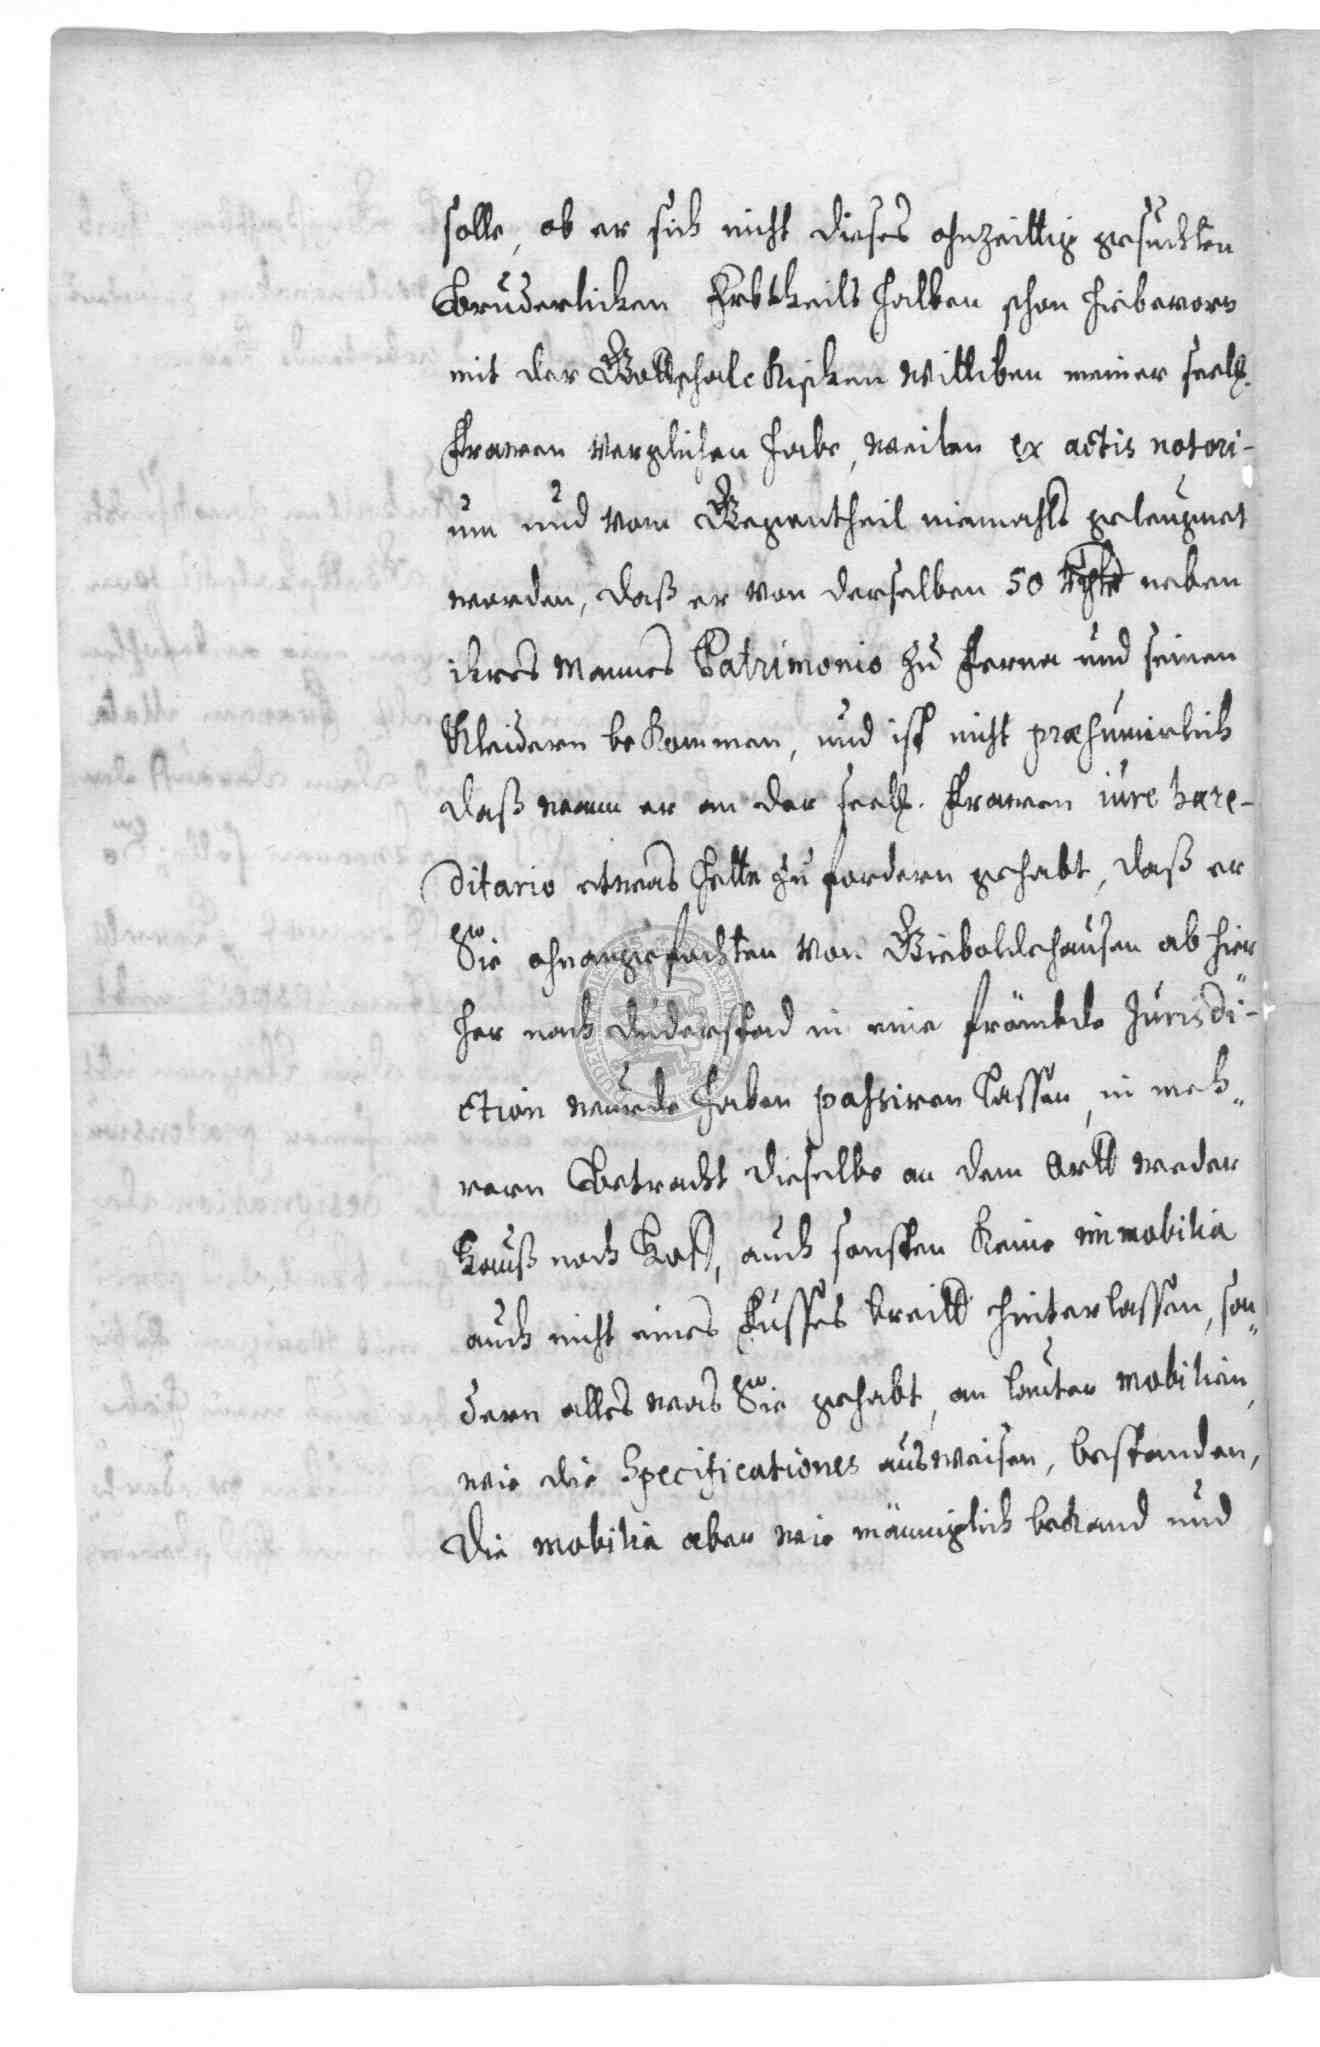 solle, ob er sich nicht dieses ohnzeittig gesuchten
Bruderlichen Erbtheils halben schon hiebevorn
mit der Gottschalckischen Wittiben meiner seelg.
Frawen verglichen habe, weilen ex actis notori-
um und vom Gegentheil niemahls geleugnet
worden, daß er von derselben 50 neben
ihres Mannes Patrimonio zu Ferna und seinen
Kleidern bekommen, und ist nicht præsumirlich
daß wann er an der seelg. Frawen iure hære-
ditario etwas hette zu fordern gehabt, daß er
Sie ohnangefochten von Gieboldehausen ab hier
her nach Duderstad in eine frömbde Jurisdi-
ction wurde haben passiren lassen, in meh-
rern Betracht dieselbe an dem Ortt weder
Hauß noch Hoff, auch sonsten keine immobilia
auch nicht eines Fusses breitt hinterlassen, son-
dern alles was Sie gehabt, an lauter mobilien,
wie die Specificationes ausweisen, bestanden,
Die mobilia aber wie männiglich bekand und